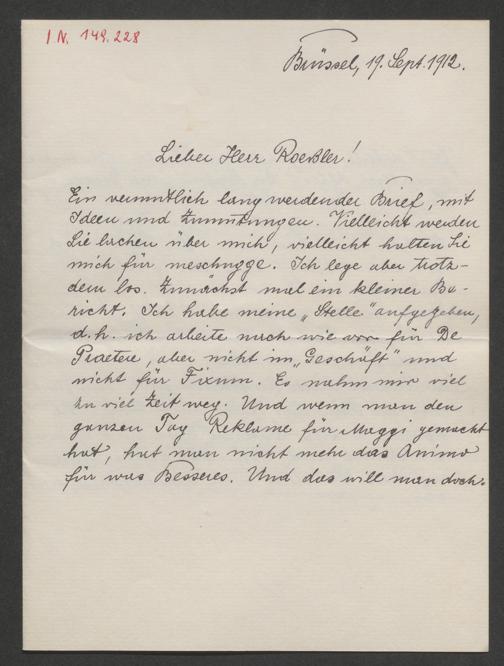 I.N. 149.228
Brüssel, 19. Sept. 1912.
Lieber Herr Roessler!
Ein vermutlich lang werdender Brief, mit
Ideen und Zumutungen. Vielleicht werden
Sie lachen über mich, vielleicht halten Sie
mich für meschugge. Ich lege aber trotz-
dem los. Zunächst mal ein kleiner Be-
richt. Ich habe meine „Stelle“ aufgegeben,
d.h. ich arbeite nach wie vor für De
Praetere, aber nicht im „Geschäft“ und
nicht für Fixum. Es nahm mir viel
zu viel Zeit weg. Und wenn man den
ganzen Tag Reklame für Maggi gemacht
hat, hat man nicht mehr das Animo
für was Besseres. Und das will man doch.